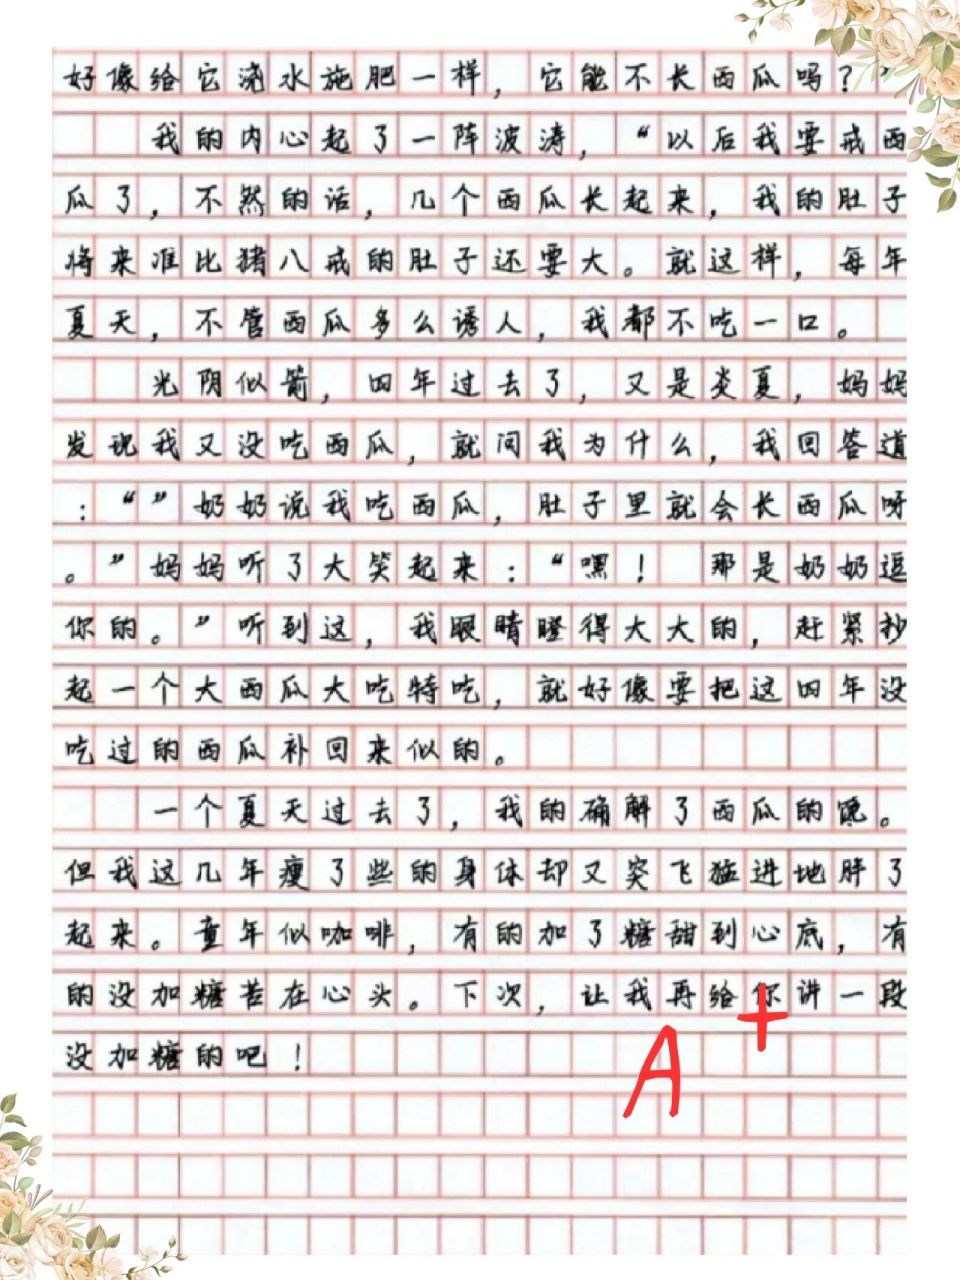 好像给它浇水施肥一样，它能不长西瓜吗？”
我的内心起了一阵波涛，“以后我要戒西
瓜了，不然的话，几个西瓜长起来，我的肚子
将来准比猪八戒的肚子还要大。就这样，每年
夏天，不管西瓜多么诱人，我都不吃一口。
光阴似箭，四年过去了，又是炎夏，妈妈
发现我又没吃西瓜，就问我为什么，我回答道
：“”奶奶说我吃西瓜，肚子里就会长西瓜呀
。”妈妈听了大笑起来：“嘿！那是奶奶逗
你的。”听到这，我眼睛瞪得大大的，赶紧抄
起一个大西瓜大吃特吃，就好像要把这四年没
吃过的西瓜补回来似的。
一个夏天过去了，我的确解了西瓜的馋。
但我这几年瘦了些的身体却又突飞猛进地胖了
起来。童年似咖啡，有的加了糖甜到心底，有
的没加糖苦在心头。下次，让我再给你讲一段
没加糖的吧！
A+